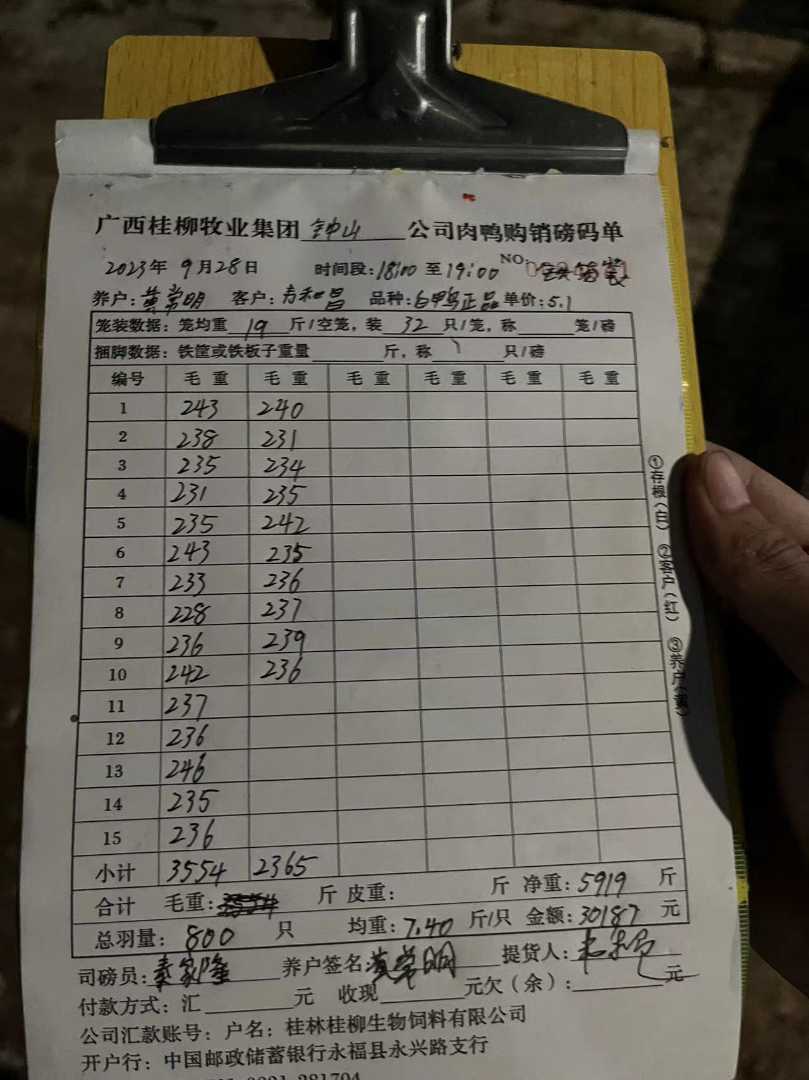 广西桂柳牧业集团 钟山 公司肉鸭购销磅码单
2023年 9月28日 时间段:18:00 至 19:00 NO:
养户:黄常明 客户: 品种:白鸭正品 单价:5.1
笼装数据:笼均重 19 斤/空笼,装 32 只/笼,称 笼/磅
捆脚数据:铁筐或铁板子重量 斤,称 只/磅
编号 毛重 毛重 毛重 毛重 毛重 毛重
1 243 240
2 238 231
3 235 234
4 231 235
5 235 242
6 243 235
7 233 236
8 228 237
9 236 239
10 242 236
11 237
12 236
13 246
14 235
15 236
小计 3554 2365
合计 毛重: 斤 皮重: 斤 净重:5919 斤
总羽量:800 只 均重:7.40 斤/只 金额:30187 元
司磅员:秦家隆 养户签名:黄常明 提货人:
付款方式:汇 元 收现 元欠(余): 元
公司汇款账号:户名:桂林桂柳生物饲料有限公司
开户行:中国邮政储蓄银行永福县永兴路支行
①存根(白) ②客户(红) ③养户(黄)